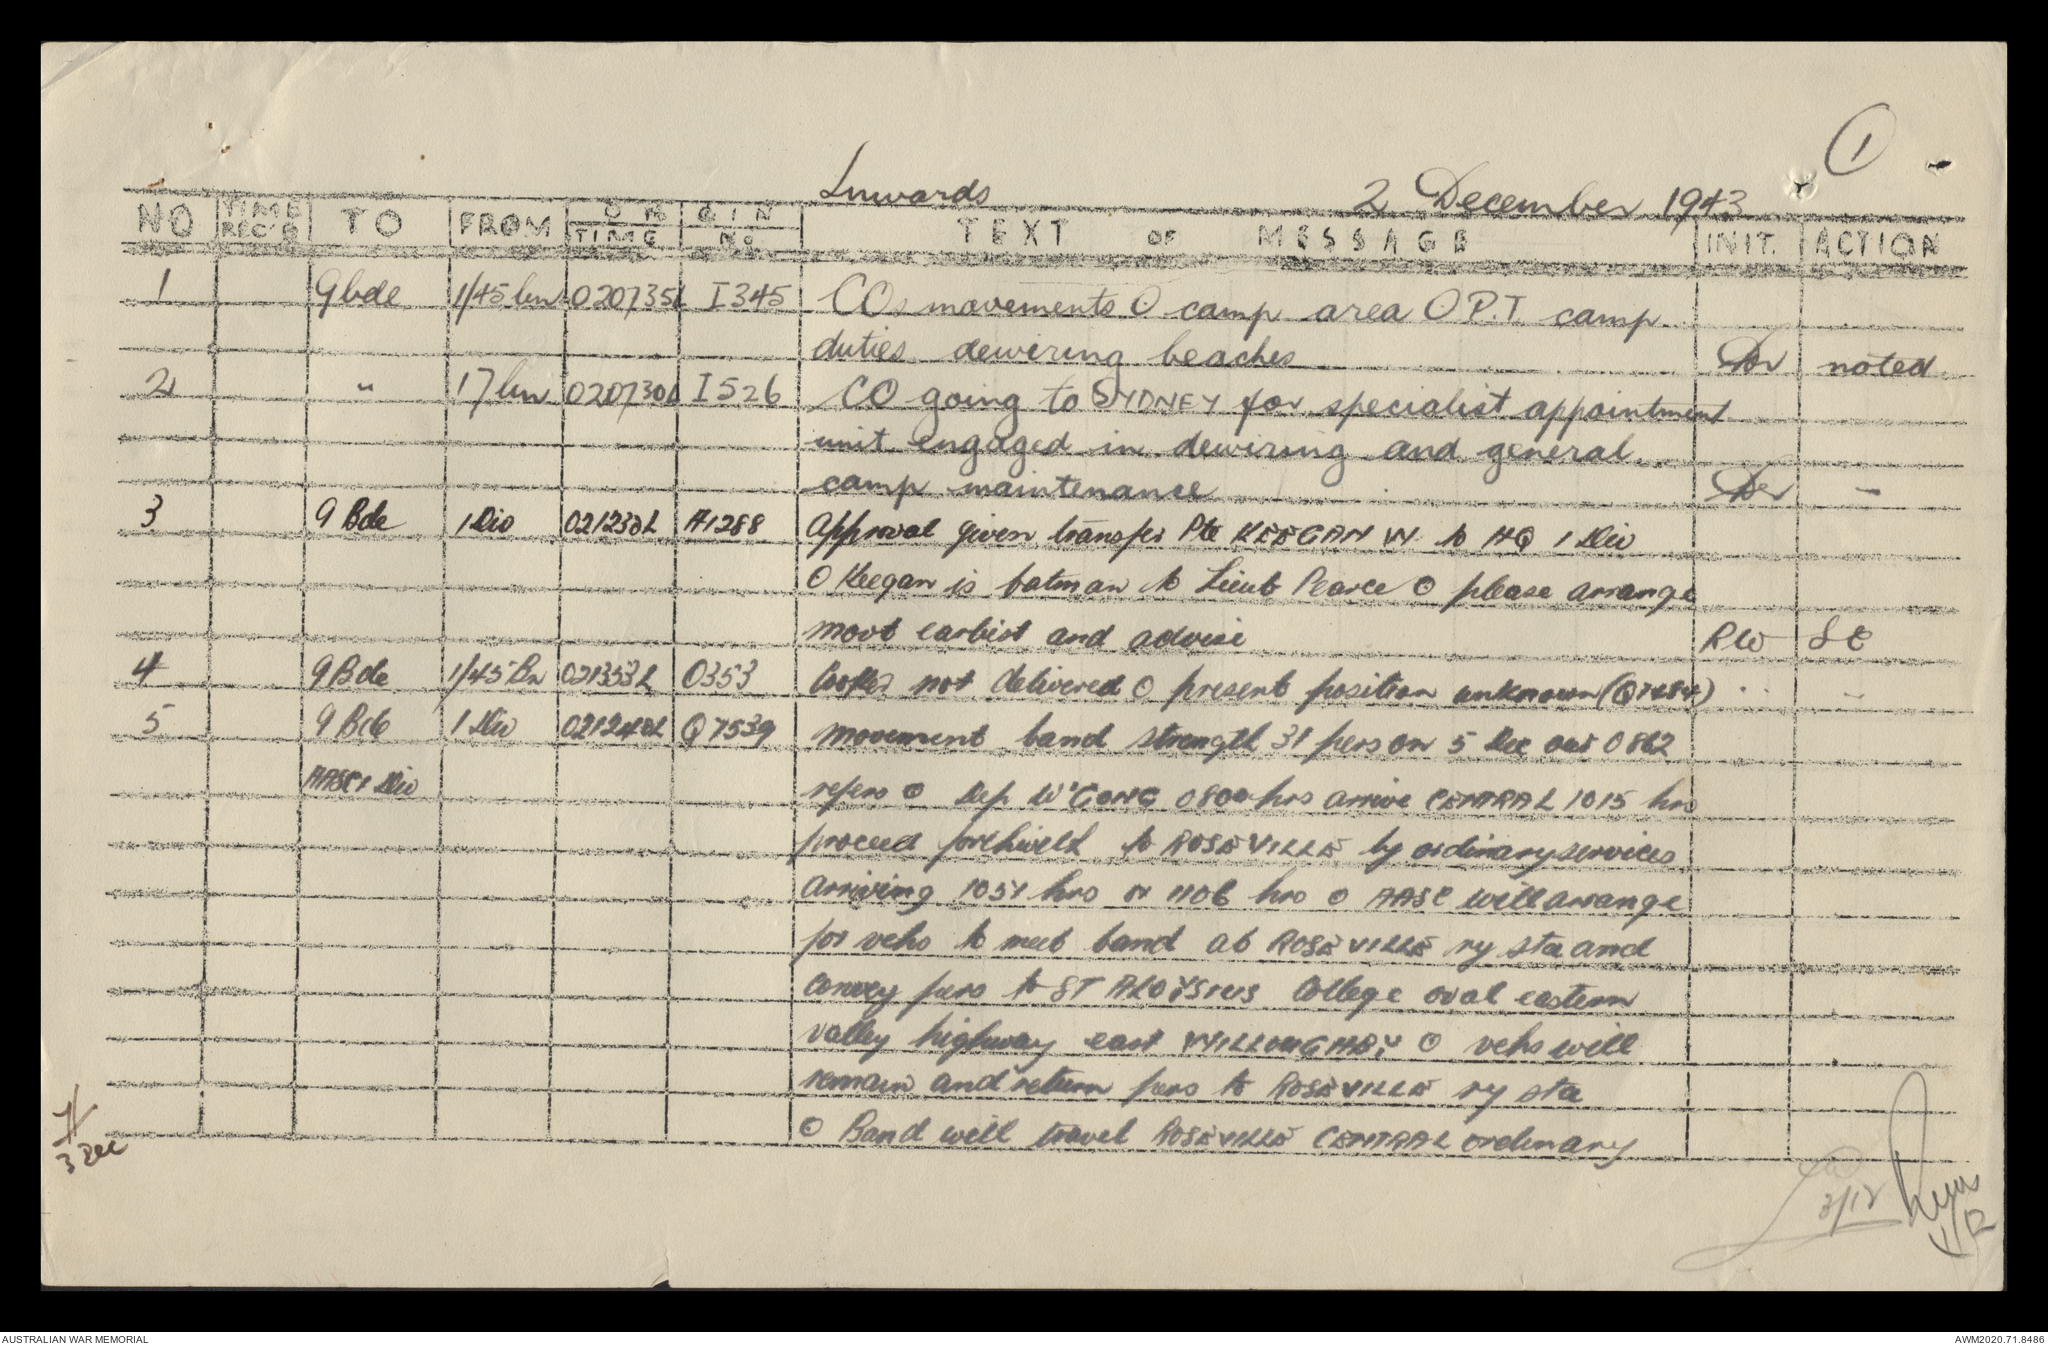 ①
Inwards 2 December 1943
NO TIME REC'D TO FROM ORIGIN TIME No. TEXT OF MESSAGE INIT. ACTION
1 9 bde 1/45 bn 020735L I345 COs movements O camp area O P.T. camp
duties dewiring beaches noted
2 " 17 bn 020730L I526 CO going to SYDNEY for specialist appointment
unit engaged in dewiring and general
camp maintenance "
3 9 Bde 1 Div 021230L A1288 Approval given transfer Pte KEEGAN W. to HQ 1 Div
O Keegan is batman to Lieut Pearce O please arrange
movt earliest and advise RW SC
4 9 Bde 1/45 Bn 021353L O353 not delivered O present position unknown (Q7484) " "
5 9 Bde 1 Div Q7539 Movement band strength 31 pers on 5 Dec our O862
AASC 1 Div refers O Dep W'GONG 0800 hrs arrive CENTRAL 1015 hrs
proceed forthwith to ROSEVILLE by ordinary services
arriving 1051 hrs or 1106 hrs O AASC will arrange
for vehs to meet band at ROSEVILLE ry sta and
convey pers to ST ALOYSIUS College oval eastern
valley highway east WILLOUGHBY O vehs will
remain and return pers to ROSEVILLE ry sta
O Band will travel ROSEVILLE CENTRAL ordinary
3 Dec
3/12
AUSTRALIAN WAR MEMORIAL AWM2020.71.8486